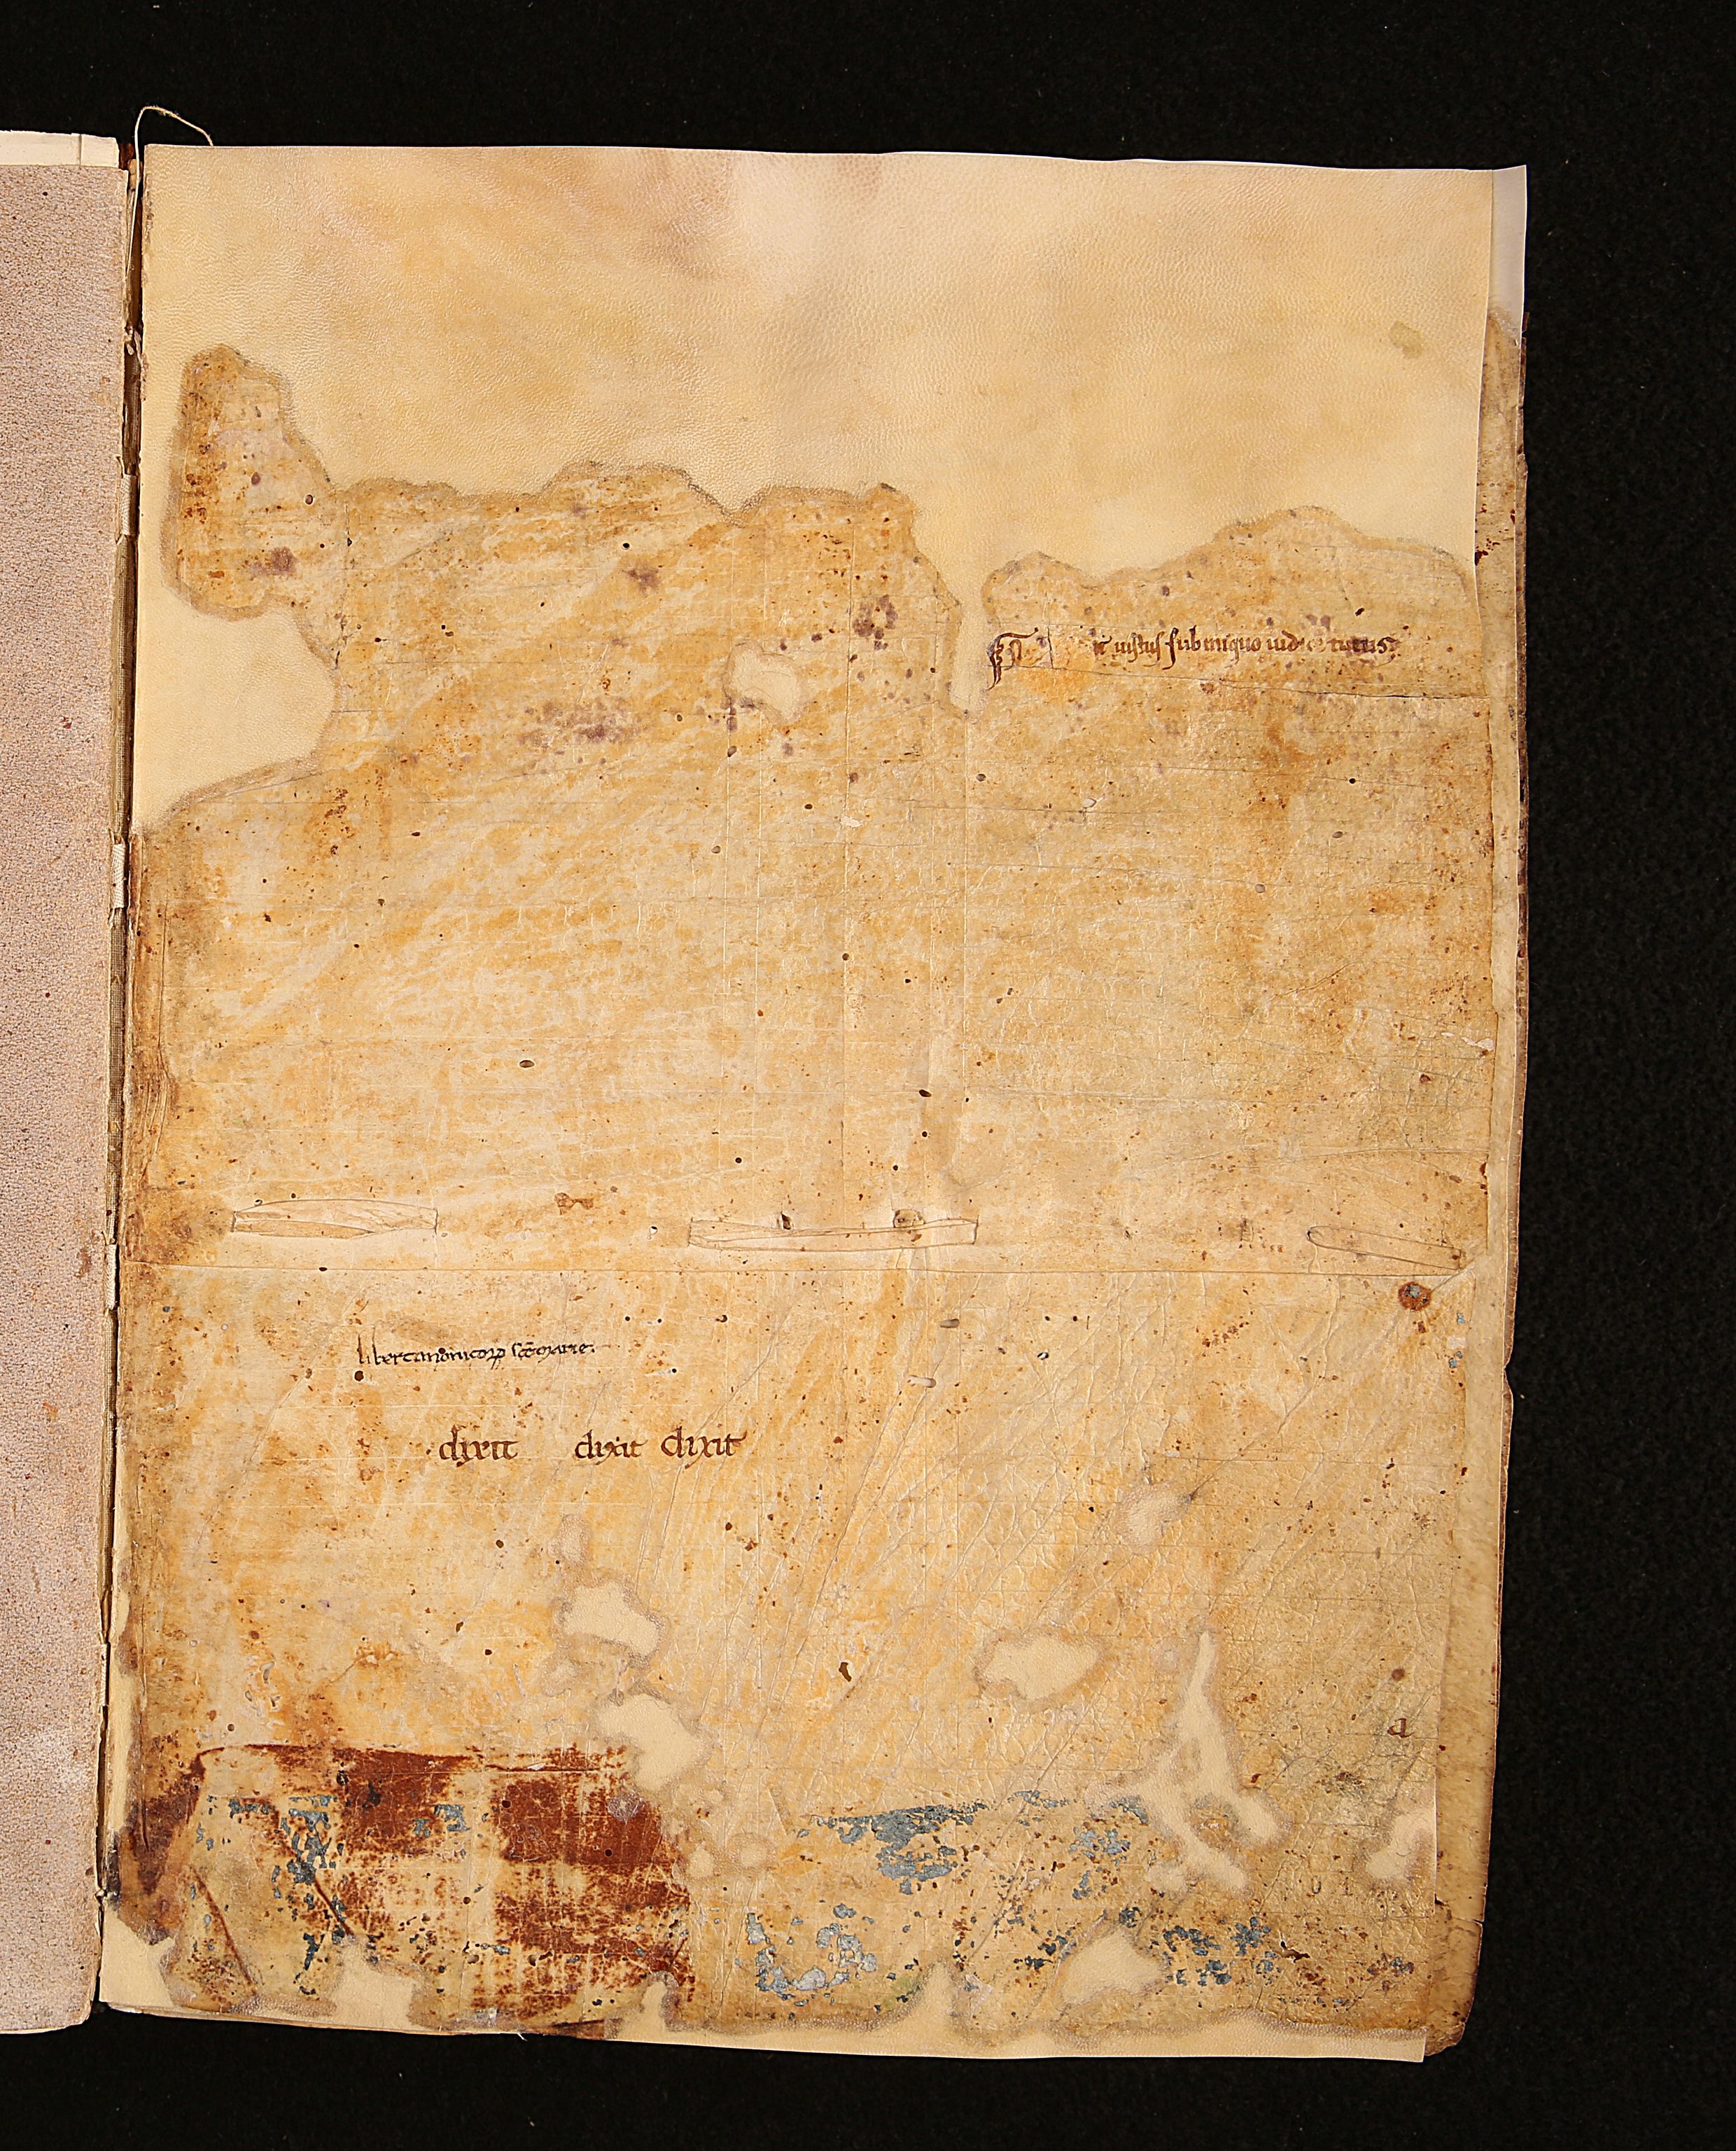 it iustus sub iniquo iudice tutus
liber canonicoꝝ sc̄e marie.
dixit dixit dixit
a